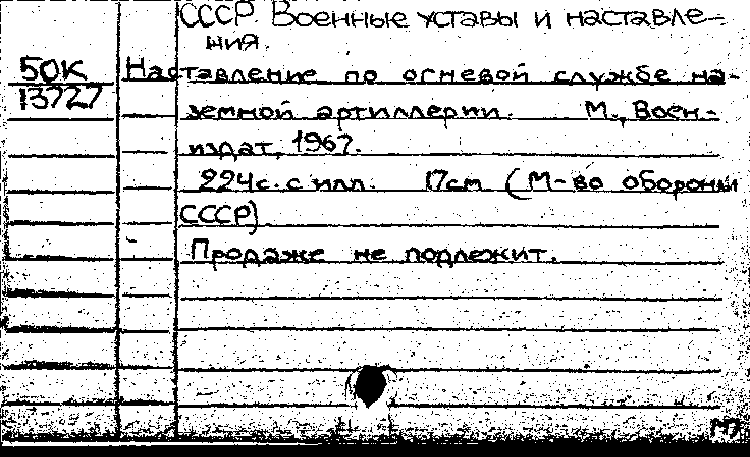 СССР. Военные уставы и наставле-
ния.
50К
13727
Наставление по огневой службе на-
земной артиллерии. М., Воен-
издат, 1967.
224с. с илл. 17см (М-во обороны
СССР)
Продаже не подлежит.